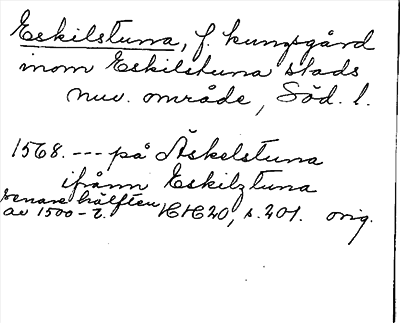 Eskilstuna, f. kungsgård
inom Eskilstuna stads
nuv. område, Söd. l.
1568. --- på Äskelstuna
ifrånn Eskilztuna
senare hälften
av 1500-t. HH 20, s. 201. orig.